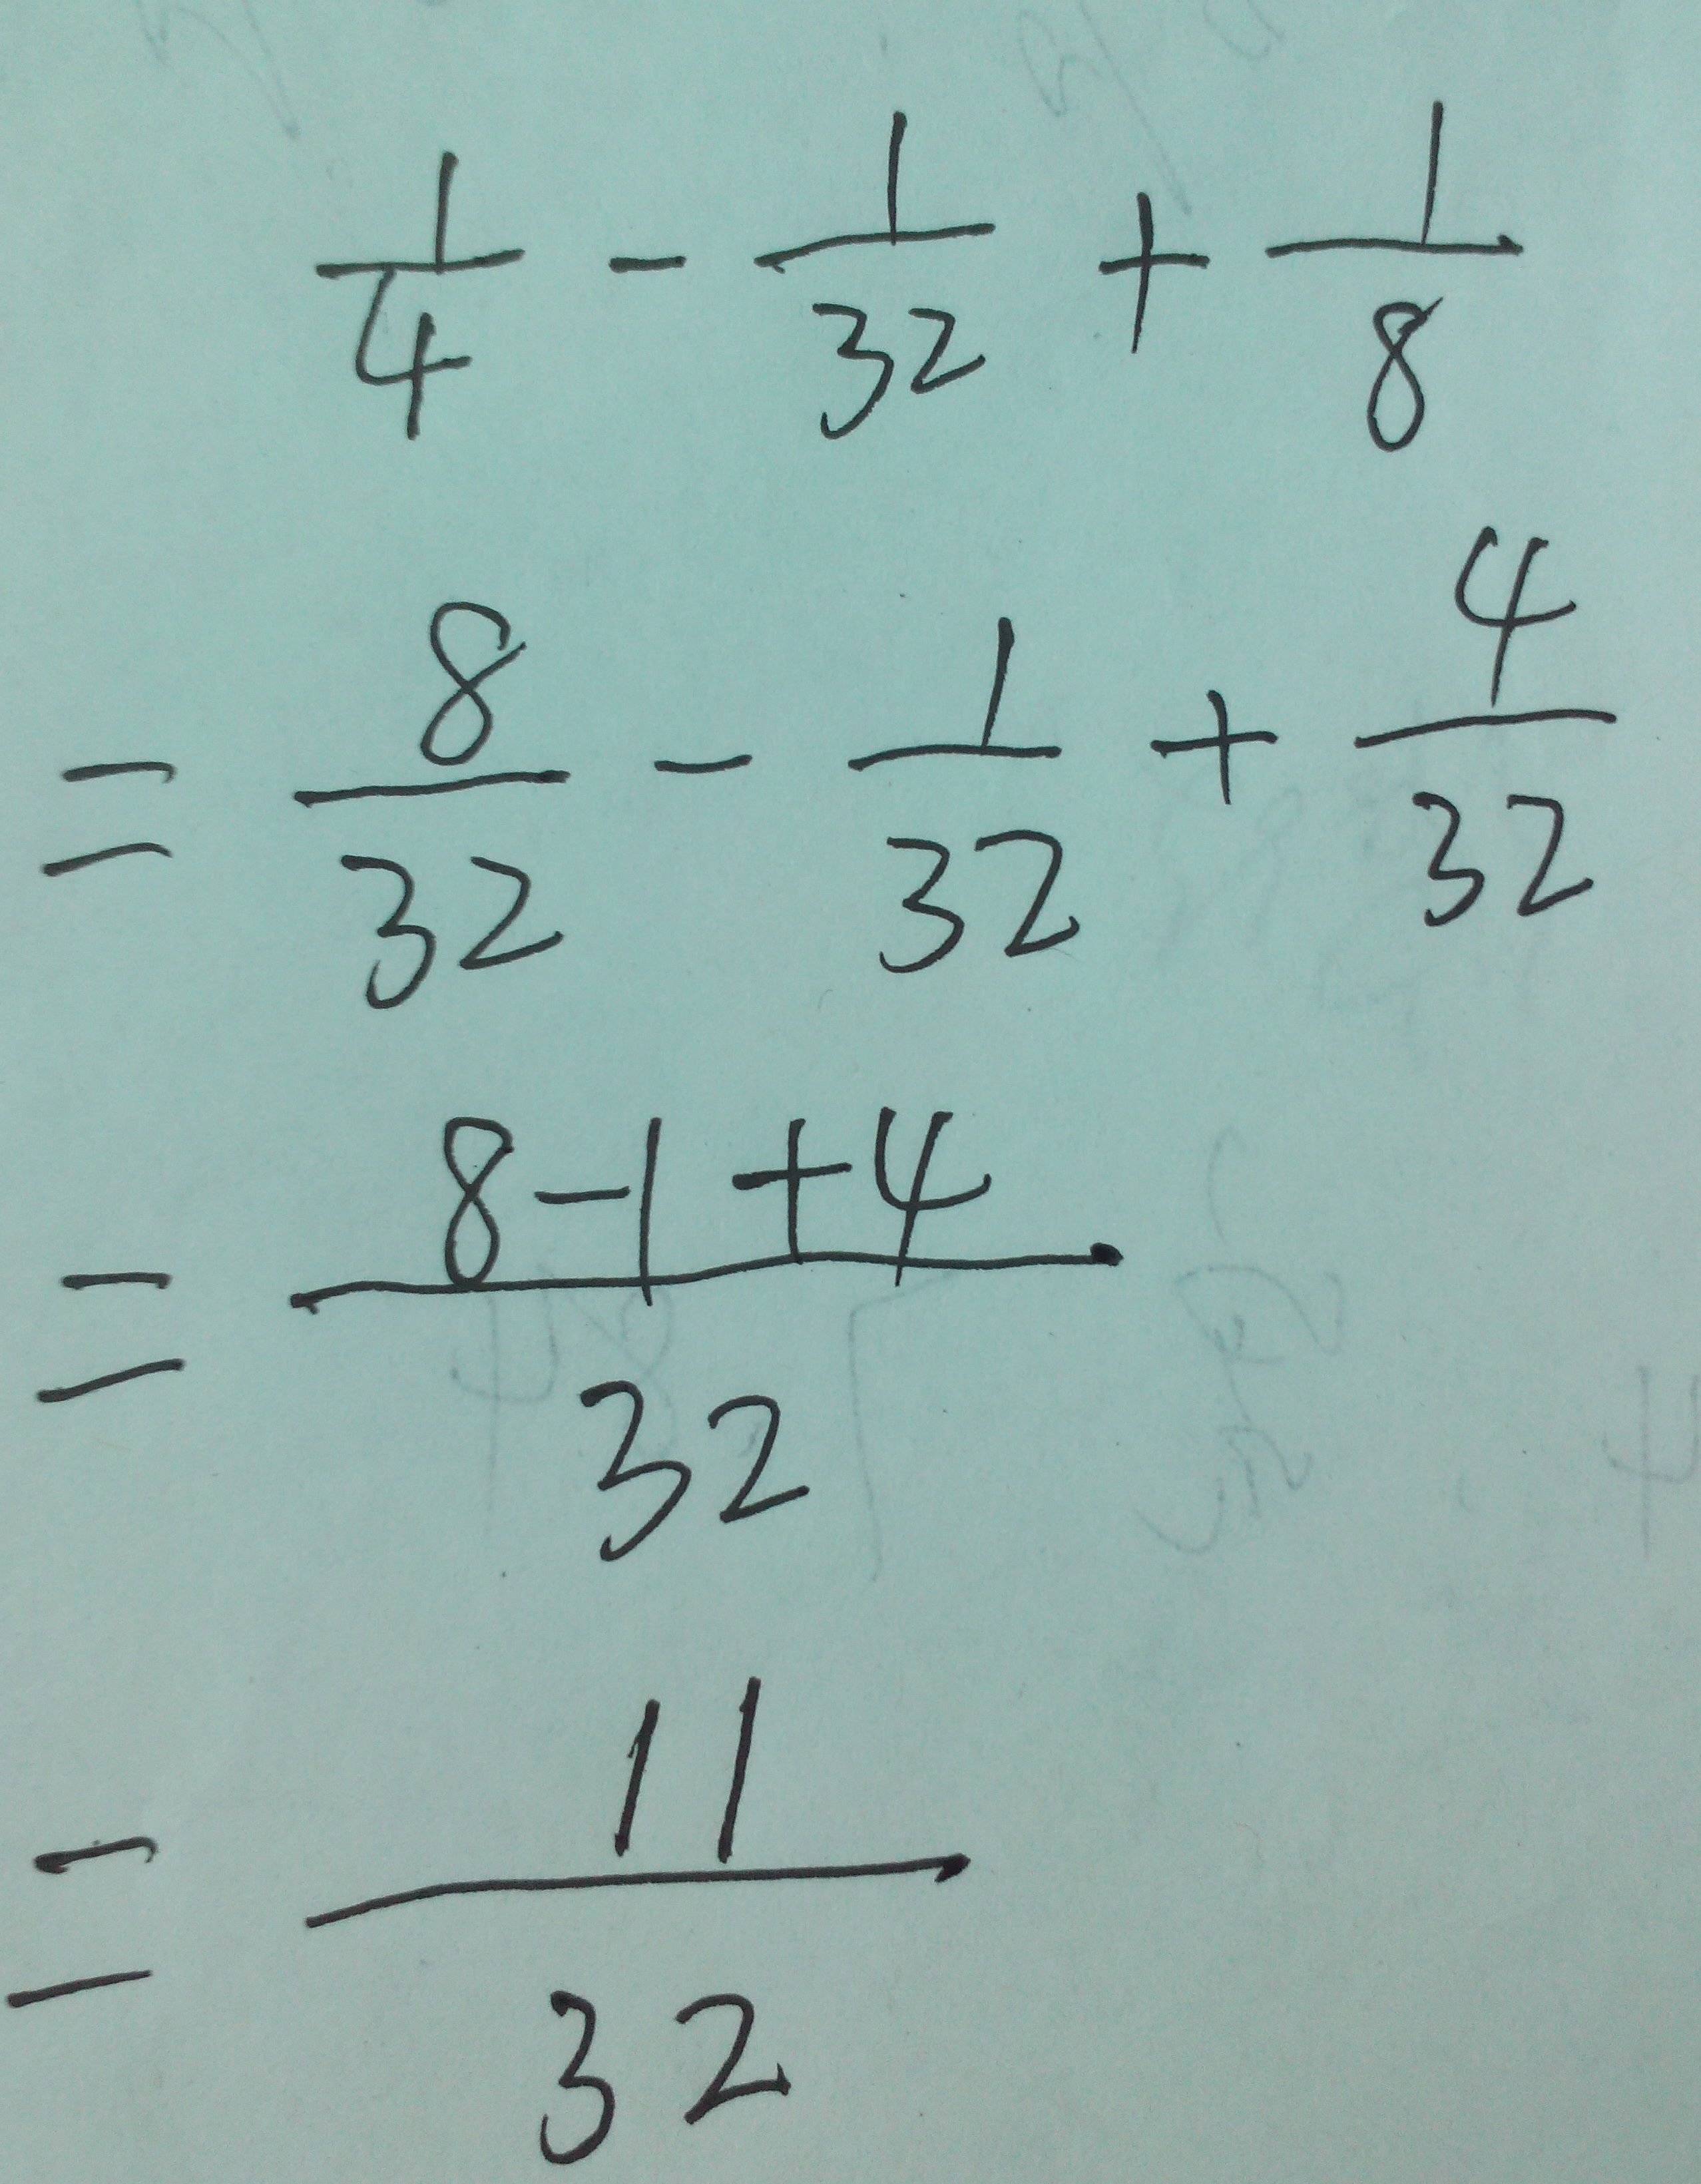 1/4 - 1/32 + 1/8
= 8/32 - 1/32 + 4/32
= (8-1+4)/32
= 11/32